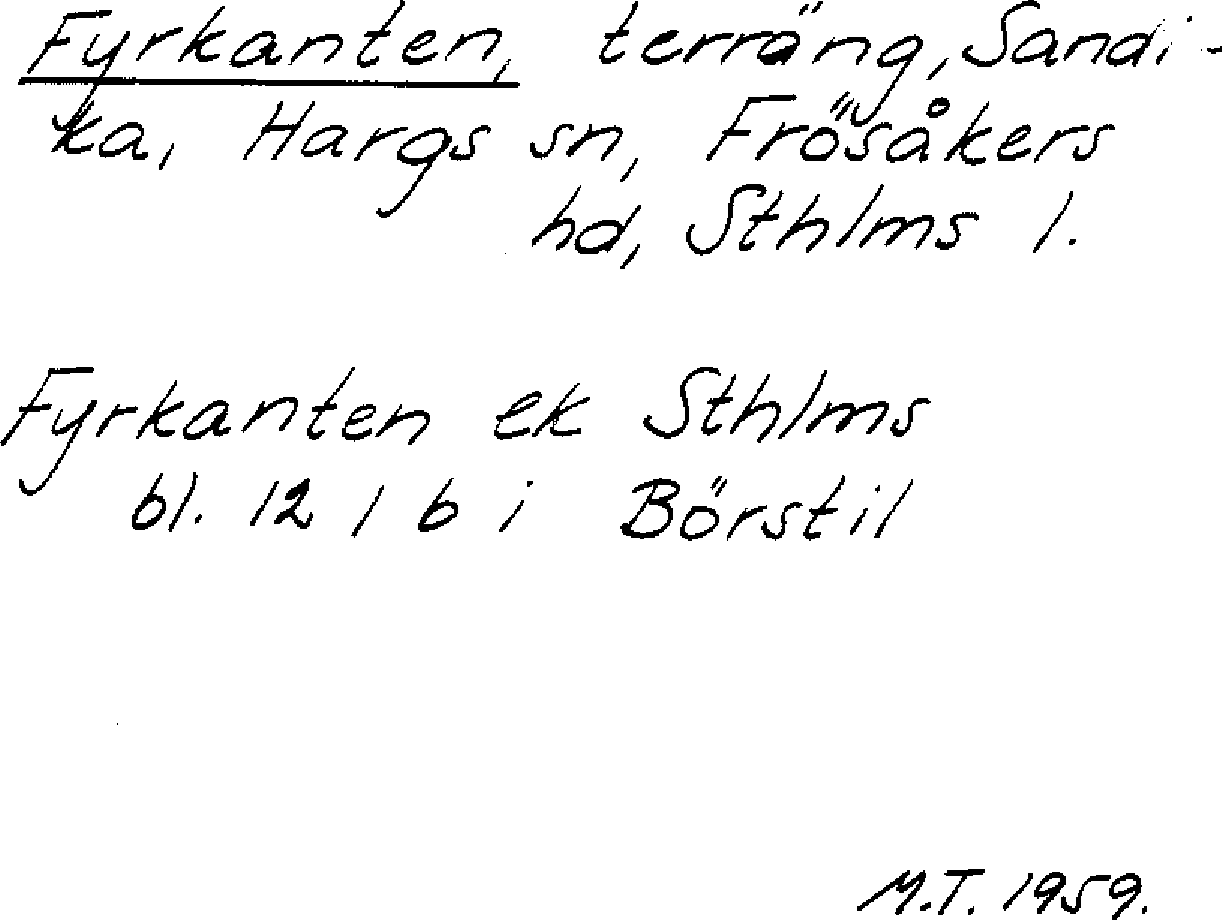 Fyrkanten, terräng, Sandi-
ka, Hargs sn, Frösåkers
hd, Sthlms l.
Fyrkanten ek Sthlms
bl. 12 I b i Börstil
M.T. 1959.